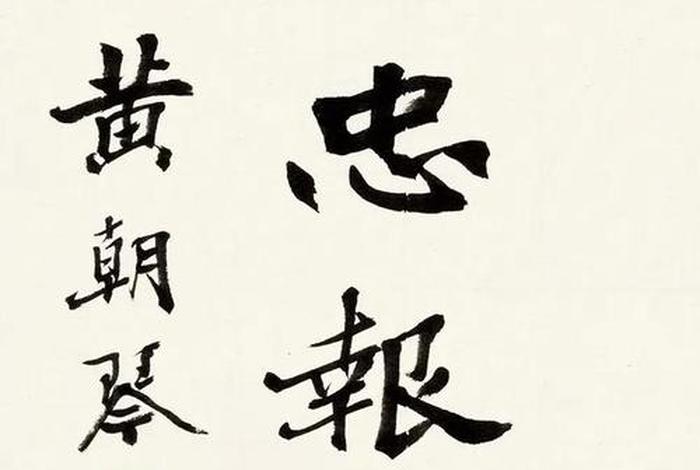 忠報
黄朝琴